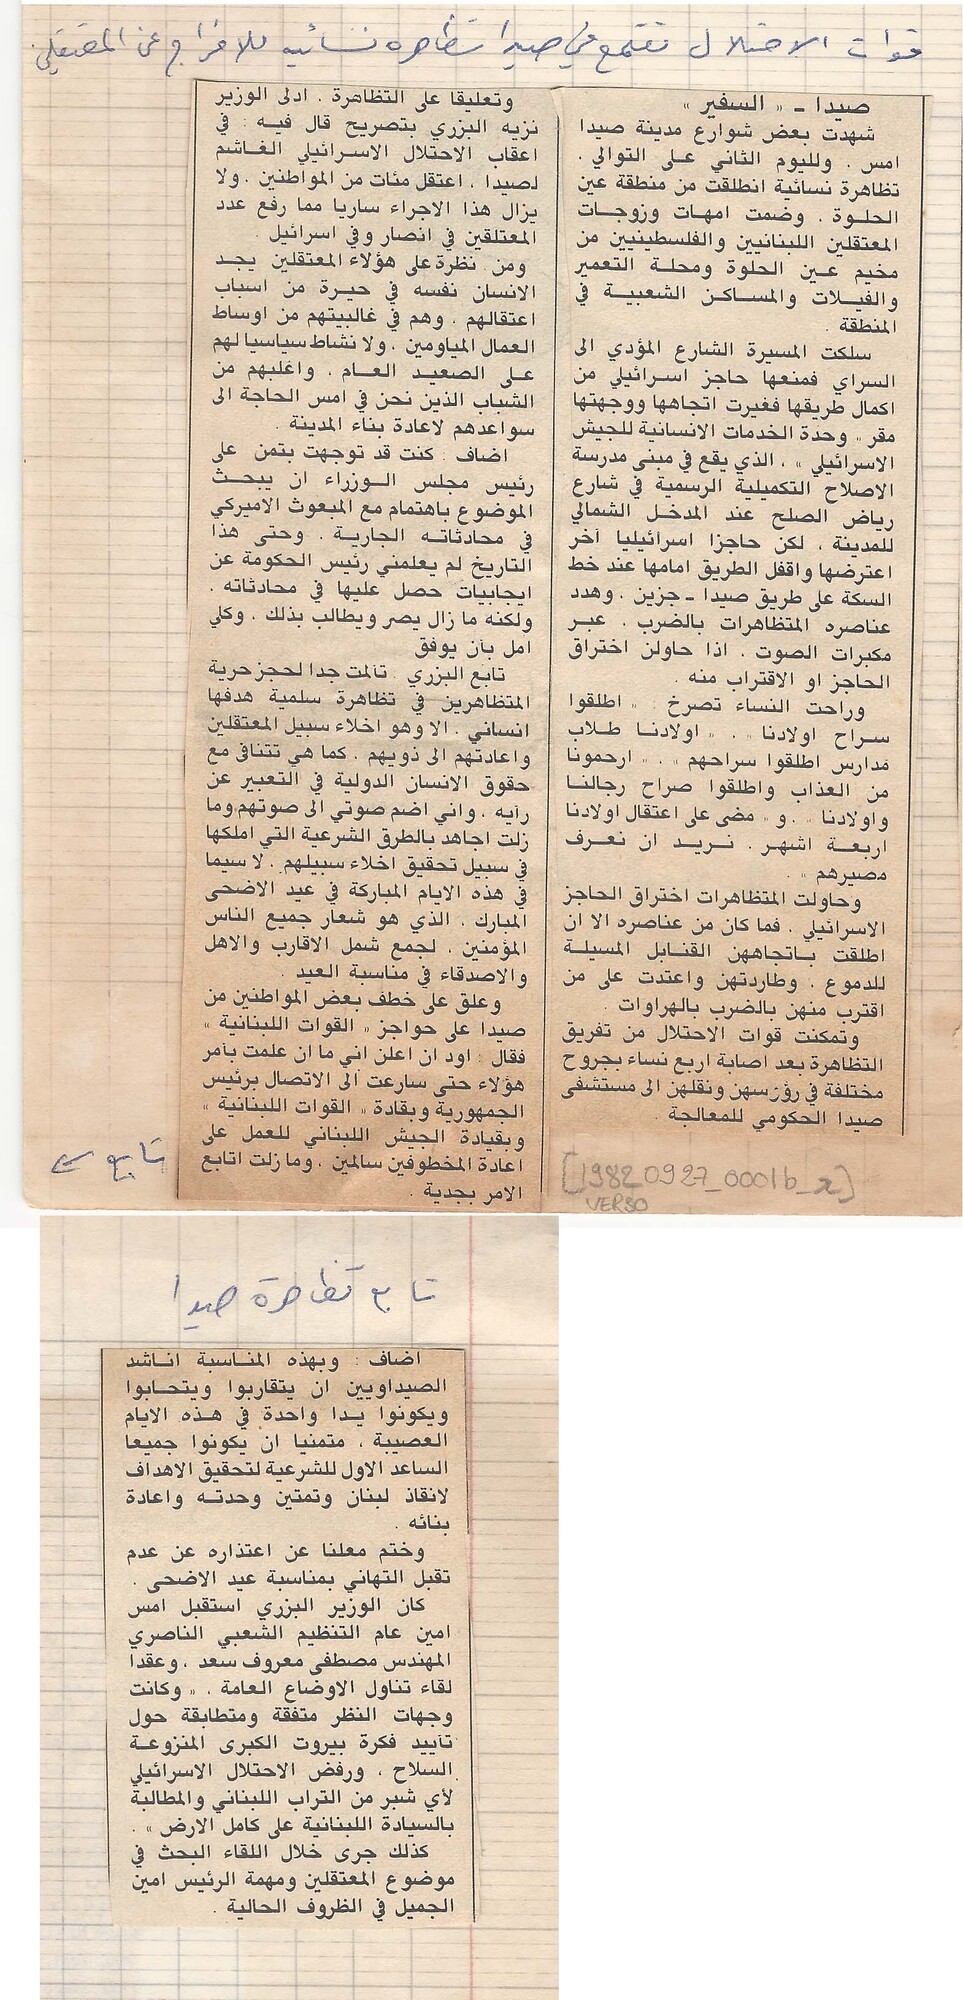 قوات الاحتلال تقمع في صيدا تظاهرة نسائية للافراج عن المعتقلين
صيدا ـ « السفير »
شهدت بعض شوارع مدينة صيدا
امس ، ولليوم الثاني على التوالي ،
تظاهرة نسائية انطلقت من منطقة عين
الحلوة ، وضمت امهات وزوجات
المعتقلين اللبنانيين والفلسطينيين من
مخيم عين الحلوة ومحلة التعمير
والفيلات والمساكن الشعبية في
المنطقة .
سلكت المسيرة الشارع المؤدي الى
السراي فمنعها حاجز اسرائيلي من
اكمال طريقها فغيرت اتجاهها ووجهتها
مقر « وحدة الخدمات الانسانية للجيش
الاسرائيلي » ، الذي يقع في مبنى مدرسة
الاصلاح التكميلية الرسمية في شارع
رياض الصلح عند المدخل الشمالي
للمدينة ، لكن حاجزا اسرائيليا آخر
اعترضها واقفل الطريق امامها عند خط
السكة على طريق صيدا ـ جزين ، وهدد
عناصره المتظاهرات بالضرب ، عبر
مكبرات الصوت ، اذا حاولن اختراق
الحاجز او الاقتراب منه .
وراحت النساء تصرخ : « اطلقوا
سراح اولادنا » ، « اولادنا طلاب
مدارس اطلقوا سراحهم » ، « ارحمونا
من العذاب واطلقوا صراح رجالنا
واولادنا » ، و « مضى على اعتقال اولادنا
اربعة اشهر . نريد ان نعرف
مصيرهم » .
وحاولت المتظاهرات اختراق الحاجز
الاسرائيلي ، فما كان من عناصره الا ان
اطلقت باتجاههن القنابل المسيلة
للدموع ، وطاردتهن واعتدت على من
اقترب منهن بالضرب بالهراوات .
وتمكنت قوات الاحتلال من تفريق
التظاهرة بعد اصابة اربع نساء بجروح
مختلفة في رؤرسهن ونقلهن الى مستشفى
صيدا الحكومي للمعالجة .
وتعليقا على التظاهرة ، ادلى الوزير
نزيه البزري بتصريح قال فيه : في
اعقاب الاحتلال الاسرائيلي الغاشم
لصيدا ، اعتقل مئات من المواطنين ، ولا
يزال هذا الاجراء ساريا مما رفع عدد
المعتلقين في انصار وفي اسرائيل .
ومن نظرة على هؤلاء المعتقلين يجد
الانسان نفسه في حيرة من اسباب
اعتقالهم ، وهم في غالبيتهم من اوساط
العمال المياومين ، ولا نشاط سياسيا لهم
على الصعيد العام ، واغلبهم من
الشباب الذين نحن في امس الحاجة الى
سواعدهم لاعادة بناء المدينة .
اضاف : كنت قد توجهت بتمن على
رئيس مجلس الوزراء ان يبحث
الموضوع باهتمام مع المبعوث الاميركي
في محادثاته الجارية . وحتى هذا
التاريخ لم يعلمني رئيس الحكومة عن
ايجابيات حصل عليها في محادثاته ،
ولكنه ما زال يصر ويطالب بذلك ، وكلي
امل بأن يوفق
تابع البزري : تألمت جدا لحجز حرية
المتظاهرين في تظاهرة سلمية هدفها
انساني ، الا وهو اخلاء سبيل المعتقلين
واعادتهم الى ذويهم ، كما هي تتنافى مع
حقوق الانسان الدولية في التعبير عن
رأيه ، واني اضم صوتي الى صوتهم وما
زلت اجاهد بالطرق الشرعية التي املكها
في سبيل تحقيق اخلاء سبيلهم ، لا سيما
في هذه الايام المباركة في عيد الاضحى
المبارك ، الذي هو شعار جميع الناس
المؤمنين ، لجمع شمل الاقارب والاهل
والاصدقاء في مناسبة العيد .
وعلق على خطف بعض المواطنين من
صيدا على حواجز « القوات اللبنانية »
فقال : اود ان اعلن اني ما ان علمت بأمر
هؤلاء حتى سارعت الى الاتصال برئيس
الجمهورية وبقادة « القوات اللبنانية »
وبقيادة الجيش اللبناني للعمل على
اعادة المخطوفين سالمين ، وما زلت اتابع
الامر بجدية .
تابع
[19820927_0001b_x]
VERSO
تابع تظاهرة صيدا
اضاف : وبهذه المناسبة اناشد
الصيداويين ان يتقاربوا ويتحابوا
ويكونوا يدا واحدة في هذه الايام
العصيبة ، متمنيا ان يكونوا جميعا
الساعد الاول للشرعية لتحقيق الاهداف
لانقاذ لبنان وتمتين وحدته واعادة
بنائه .
وختم معلنا عن اعتذاره عن عدم
تقبل التهاني بمناسبة عيد الاضحى .
كان الوزير البزري استقبل امس
امين عام التنظيم الشعبي الناصري
المهندس مصطفى معروف سعد ، وعقدا
لقاء تناول الاوضاع العامة ، « وكانت
وجهات النظر متفقة ومتطابقة حول
تأييد فكرة بيروت الكبرى المنزوعة
السلاح ، ورفض الاحتلال الاسرائيلي
لأي شبر من التراب اللبناني والمطالبة
بالسيادة اللبنانية على كامل الارض » .
كذلك جرى خلال اللقاء البحث في
موضوع المعتقلين ومهمة الرئيس امين
الجميل في الظروف الحالية .